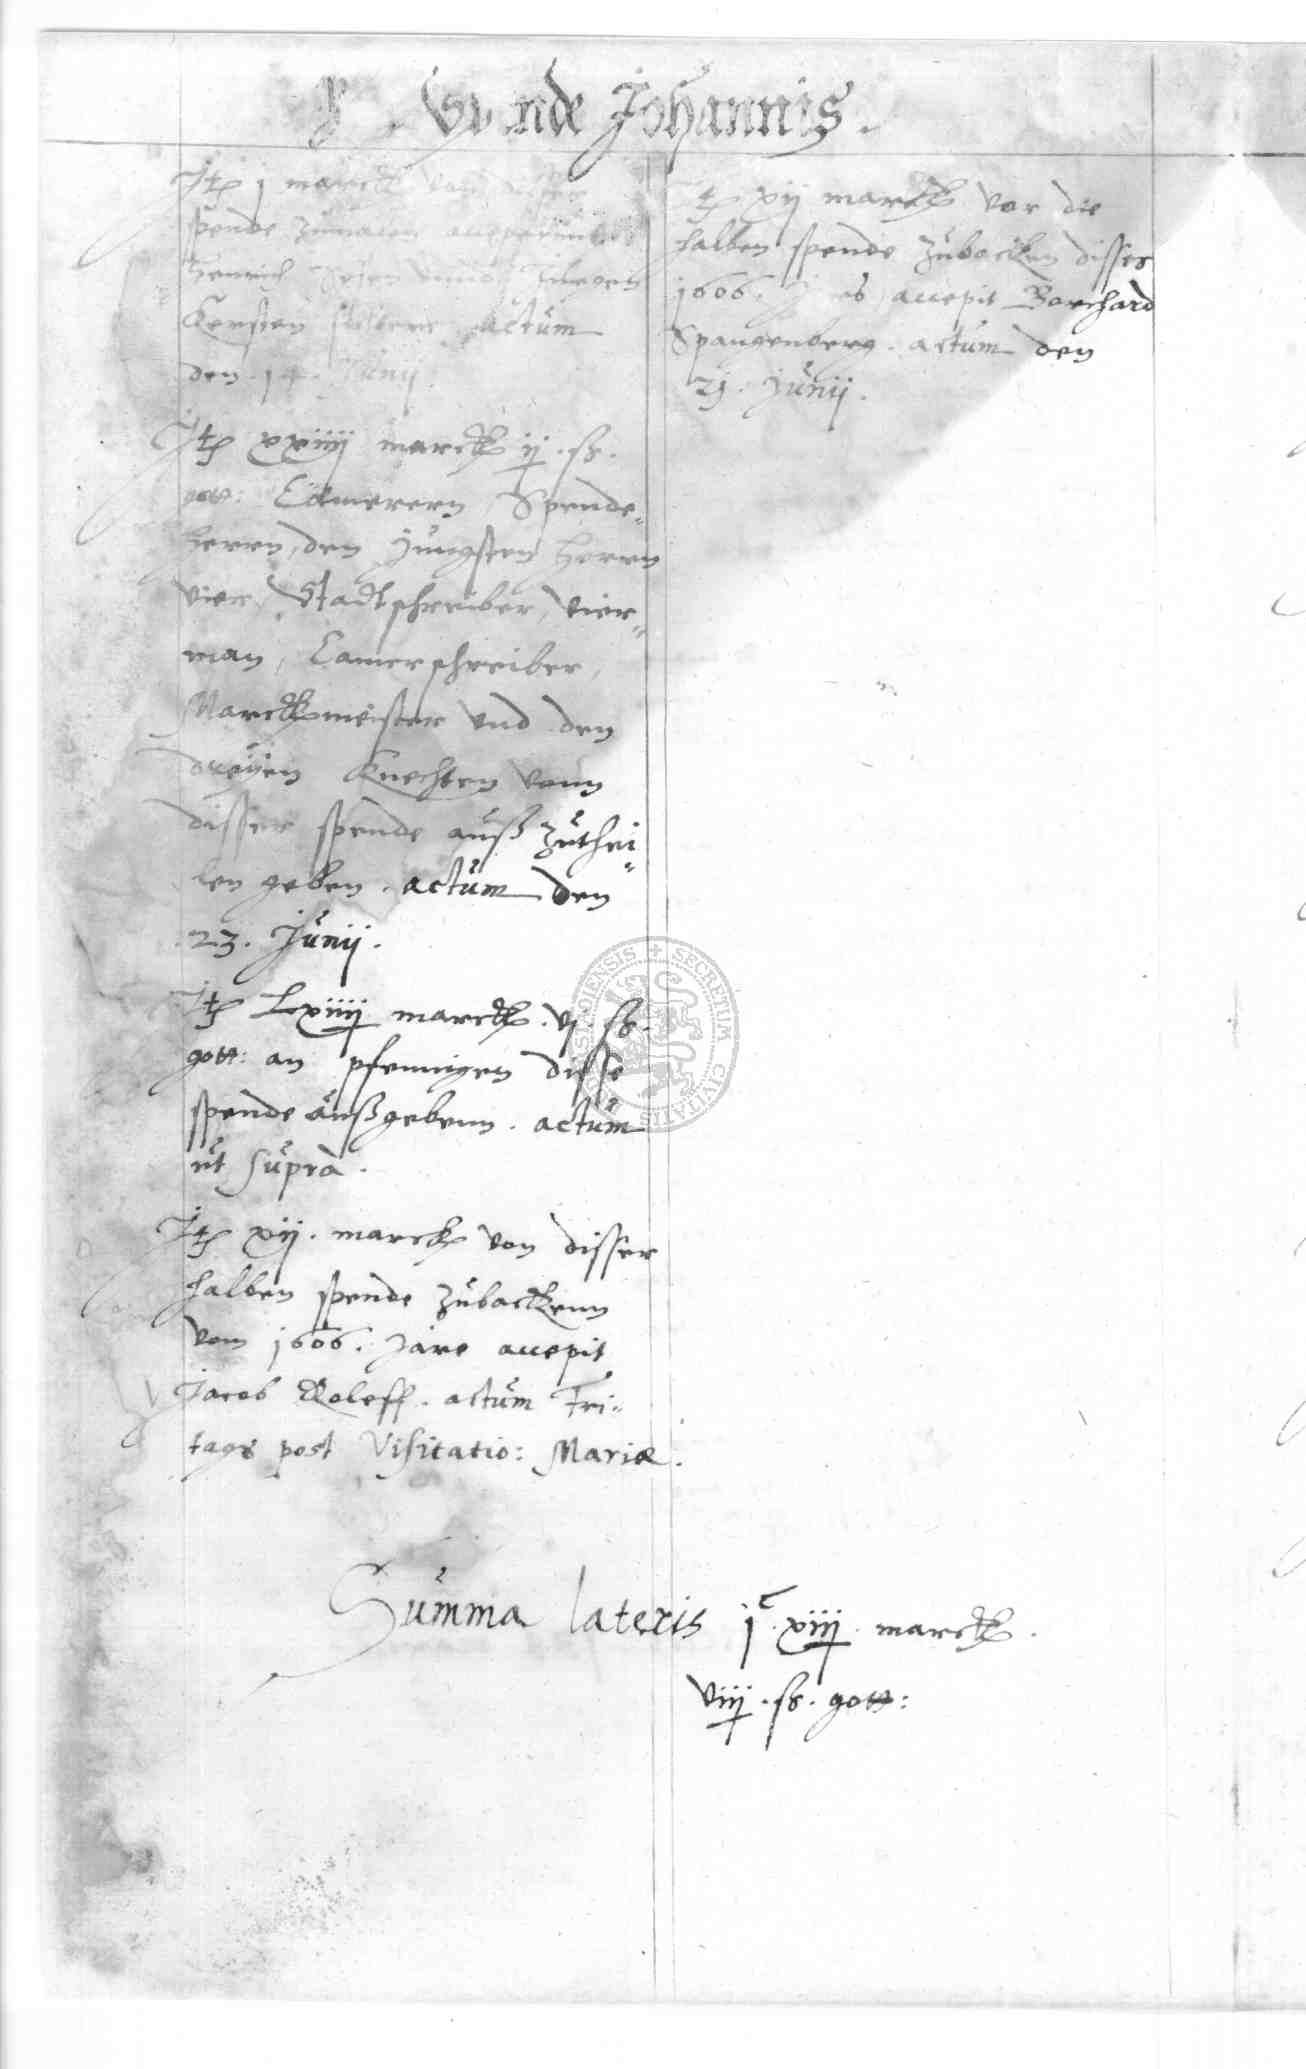 nde Johannis.
Jtem j marck von disser
spende
Henrich
Kersten actum
den 14. Junij
Jtem xxiiij marck ij. ß.
gott: Cämerern, Spende-
herrn, den jüngsten herrn
vier, Stadtschreiber, vier-
man, Camerschreiber,
Marcktmeister vnd den
dreyen Knechten vonn
disser spende auß zuthei-
len geben. actum den
23. Junij.
Jtem Lxxiiij marck. vj. ß.
gott: an pfennigen disse
spende außgebenn. actum
ut supra.
Jtem xij. marck von disser
halben spende zubackenn
vom 1606. jare accepit
Jacob Roleff. actum Fri-
tags post Visitatio: Mariæ.
Jtem xij marck vor die
halben spende zubacken disses
1606. accepit Borchard
Spangenberg. actum den
21. Junij.
Summa lateris jc. xiij. marck.
viij. ß. gott:
SECRETUM CIVITATIS